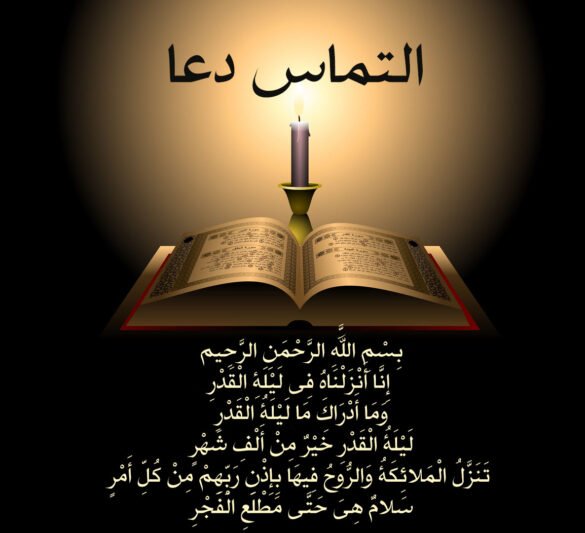 التماس دعا
بِسْمِ اللَّهِ الرَّحْمَنِ الرَّحِيمِ
إِنَّا أَنْزَلْنَاهُ فِی لَیْلَةِ الْقَدْرِ
وَمَا أَدْرَاكَ مَا لَیْلَةُ الْقَدْرِ
لَیْلَةُ الْقَدْرِ خَیْرٌ مِنْ أَلْفِ شَهْرٍ
تَنَزَّلُ الْمَلائِكَةُ وَالرُّوحُ فِیهَا بِإِذْنِ رَبِّهِمْ مِنْ كُلِّ أَمْرٍ
سَلامٌ هِیَ حَتَّى مَطْلَعِ الْفَجْرِ